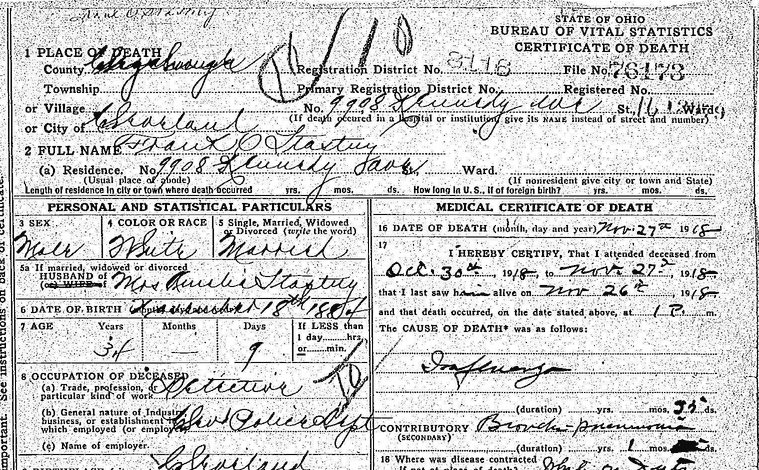 STATE OF OHIO
BUREAU OF VITAL STATISTICS
CERTIFICATE OF DEATH
1 PLACE OF DEATH
County Registration District No. 8116 File No. 76173
Township Primary Registration District No. Registered No.
or Village No. 9908 Kennedy ave St. Ward
(If death occured in a hospital or institution, give its NAME instead of street and number)
or City of Cleveland
2 FULL NAME Frank
(a) Residence. No 9908 Kennedy Ave St. Ward.
(Usual place of abode) (If nonresident give city or town and State)
Length of residence in city or town where death occurred yrs. mos. ds. How long in U. S., if of foreign birth? yrs. mos. ds.
PERSONAL AND STATISTICAL PARTICULARS
3 SEX 4 COLOR OR RACE 5 Single, Married, Widowed or Divorced (write the word)
Male White Married
5a If married, widowed or divorced
HUSBAND of Mrs
(or) WIFE of
6 DATE OF BIRTH (month, day and year) 18th
7 AGE Years Months Days If LESS than 1 day, hrs. or min.
34 — 9
8 OCCUPATION OF DECEASED
(a) Trade, profession, or particular kind of work Detective
(b) General nature of Industry, business, or establishment in which employed (or employer) Police Dept
(c) Name of employer
Cleveland
MEDICAL CERTIFICATE OF DEATH
16 DATE OF DEATH (month, day and year) Nov. 27th 1918
17
I HEREBY CERTIFY, That I attended deceased from
Oct. 30th, 1918, to Nov. 27th, 1918
that I last saw him alive on Nov 26th, 1918
and that death occurred, on the date stated above, at m.
The CAUSE OF DEATH* was as follows:
Influenza
(duration) yrs. mos. ds.
CONTRIBUTORY Broncho-pneumonia
(SECONDARY)
(duration) yrs. 1 mos. ds.
18 Where was disease contracted
important. See instructions on back of certificate.